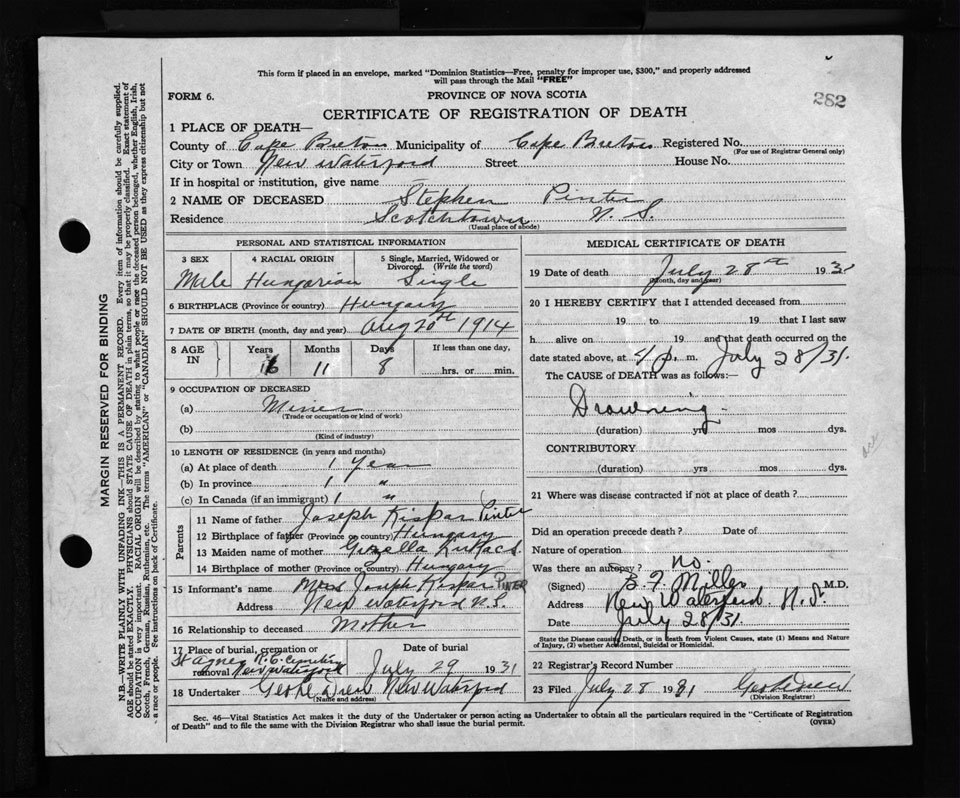 This form if placed in an envelope, marked "Dominion Statistics—Free, penalty for improper use, $300," and properly addressed
will pass through the Mail "FREE"
FORM 6.
PROVINCE OF NOVA SCOTIA
282
CERTIFICATE OF REGISTRATION OF DEATH
1 PLACE OF DEATH—
County of Cape Breton Municipality of Cape Breton Registered No.
(For use of Registrar General only)
City or Town New Waterford Street House No.
If in hospital or institution, give name
2 NAME OF DECEASED Stephen Pinter
Residence Scotchtown N. S.
(Usual place of abode)
PERSONAL AND STATISTICAL INFORMATION
3 SEX 4 RACIAL ORIGIN 5 Single, Married, Widowed or
Divorced. (Write the word)
Male Hungarian Single
6 BIRTHPLACE (Province or country) Hungary
7 DATE OF BIRTH (month, day and year) Aug 20th 1914
8 AGE IN Years Months Days If less than one day,
16 11 8 hrs. or min.
9 OCCUPATION OF DECEASED
(a) Miner
(Trade or occupation or kind of work)
(b)
(Kind of industry)
10 LENGTH OF RESIDENCE (in years and months)
(a) At place of death 1 Year
(b) In province 1 "
(c) In Canada (if an immigrant) 1 "
Parents
11 Name of father Joseph Kispar Pinter
12 Birthplace of father (Province or country) Hungary
13 Maiden name of mother Gizella
14 Birthplace of mother (Province or country) Hungary
15 Informant's name Mrs Joseph Kispar PINTER
Address New Waterford N.S.
16 Relationship to deceased Mother
17 Place of burial, cremation or removal Date of burial
St Agnes R.C. Cemetery New Waterford July 29 1931
18 Undertaker Geo H Dunn New Waterford
(Name and address)
MEDICAL CERTIFICATE OF DEATH
19 Date of death July 28th 1931
(Month, day and year)
20 I HEREBY CERTIFY that I attended deceased from
19 to 19 that I last saw
h alive on 19 and that death occurred on the
date stated above, at 4 p. m. July 28/31.
The CAUSE of DEATH was as follows:—
Drowning
(duration) yrs mos dys.
CONTRIBUTORY
(duration) yrs mos dys.
acc
21 Where was disease contracted if not at place of death?
Did an operation precede death? Date of
Nature of operation
Was there an autopsy? no.
(Signed) B. F. Miller M.D.
Address New Waterford. N.S.
Date July 28/31.
State the Disease causing Death, or in death from Violent Causes, state (1) Means and Nature
of Injury, (2) whether Accidental, Suicidal or Homicidal.
22 Registrar's Record Number
23 Filed July 28 1931 Geo H Dunn
(Division Registrar)
Sec. 46—Vital Statistics Act makes it the duty of the Undertaker or person acting as Undertaker to obtain all the particulars required in the "Certificate of Registration
of Death" and to file the same with the Division Registrar who shall issue the burial permit.
(OVER)
MARGIN RESERVED FOR BINDING
N.B.—WRITE PLAINLY WITH UNFADING INK—THIS IS A PERMANENT RECORD. Every item of information should be carefully supplied.
AGE should be stated EXACTLY. PHYSICIANS should STATE CAUSE OF DEATH in plain terms, so that it may be properly classified. Exact statement of
OCCUPATION is very important. RACIAL ORIGIN will be described by stating to what people or race the deceased person belonged, whether English, Irish,
Scotch, French, German, Russian, Ruthenian, etc. The terms "AMERICAN" or "CANADIAN" SHOULD NOT BE USED as they express citizenship but not
a race or people. See instructions on back of Certificate.